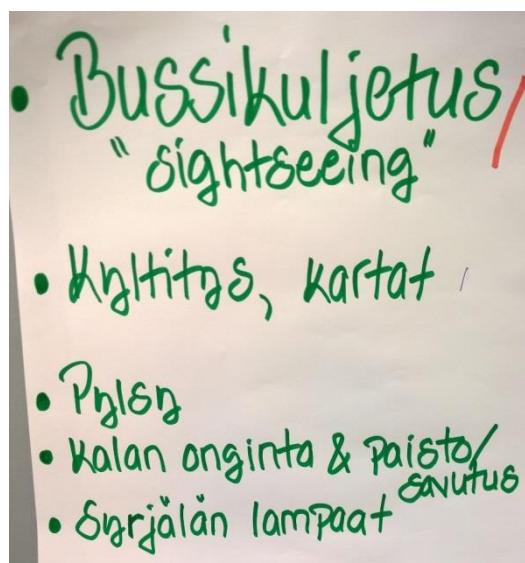 • Bussikuljetus/
"sightseeing"
• Kyltitys, kartat /
• Pylsy
• Kalan onginta & paisto/
savutus
• Syrjälän lampaat